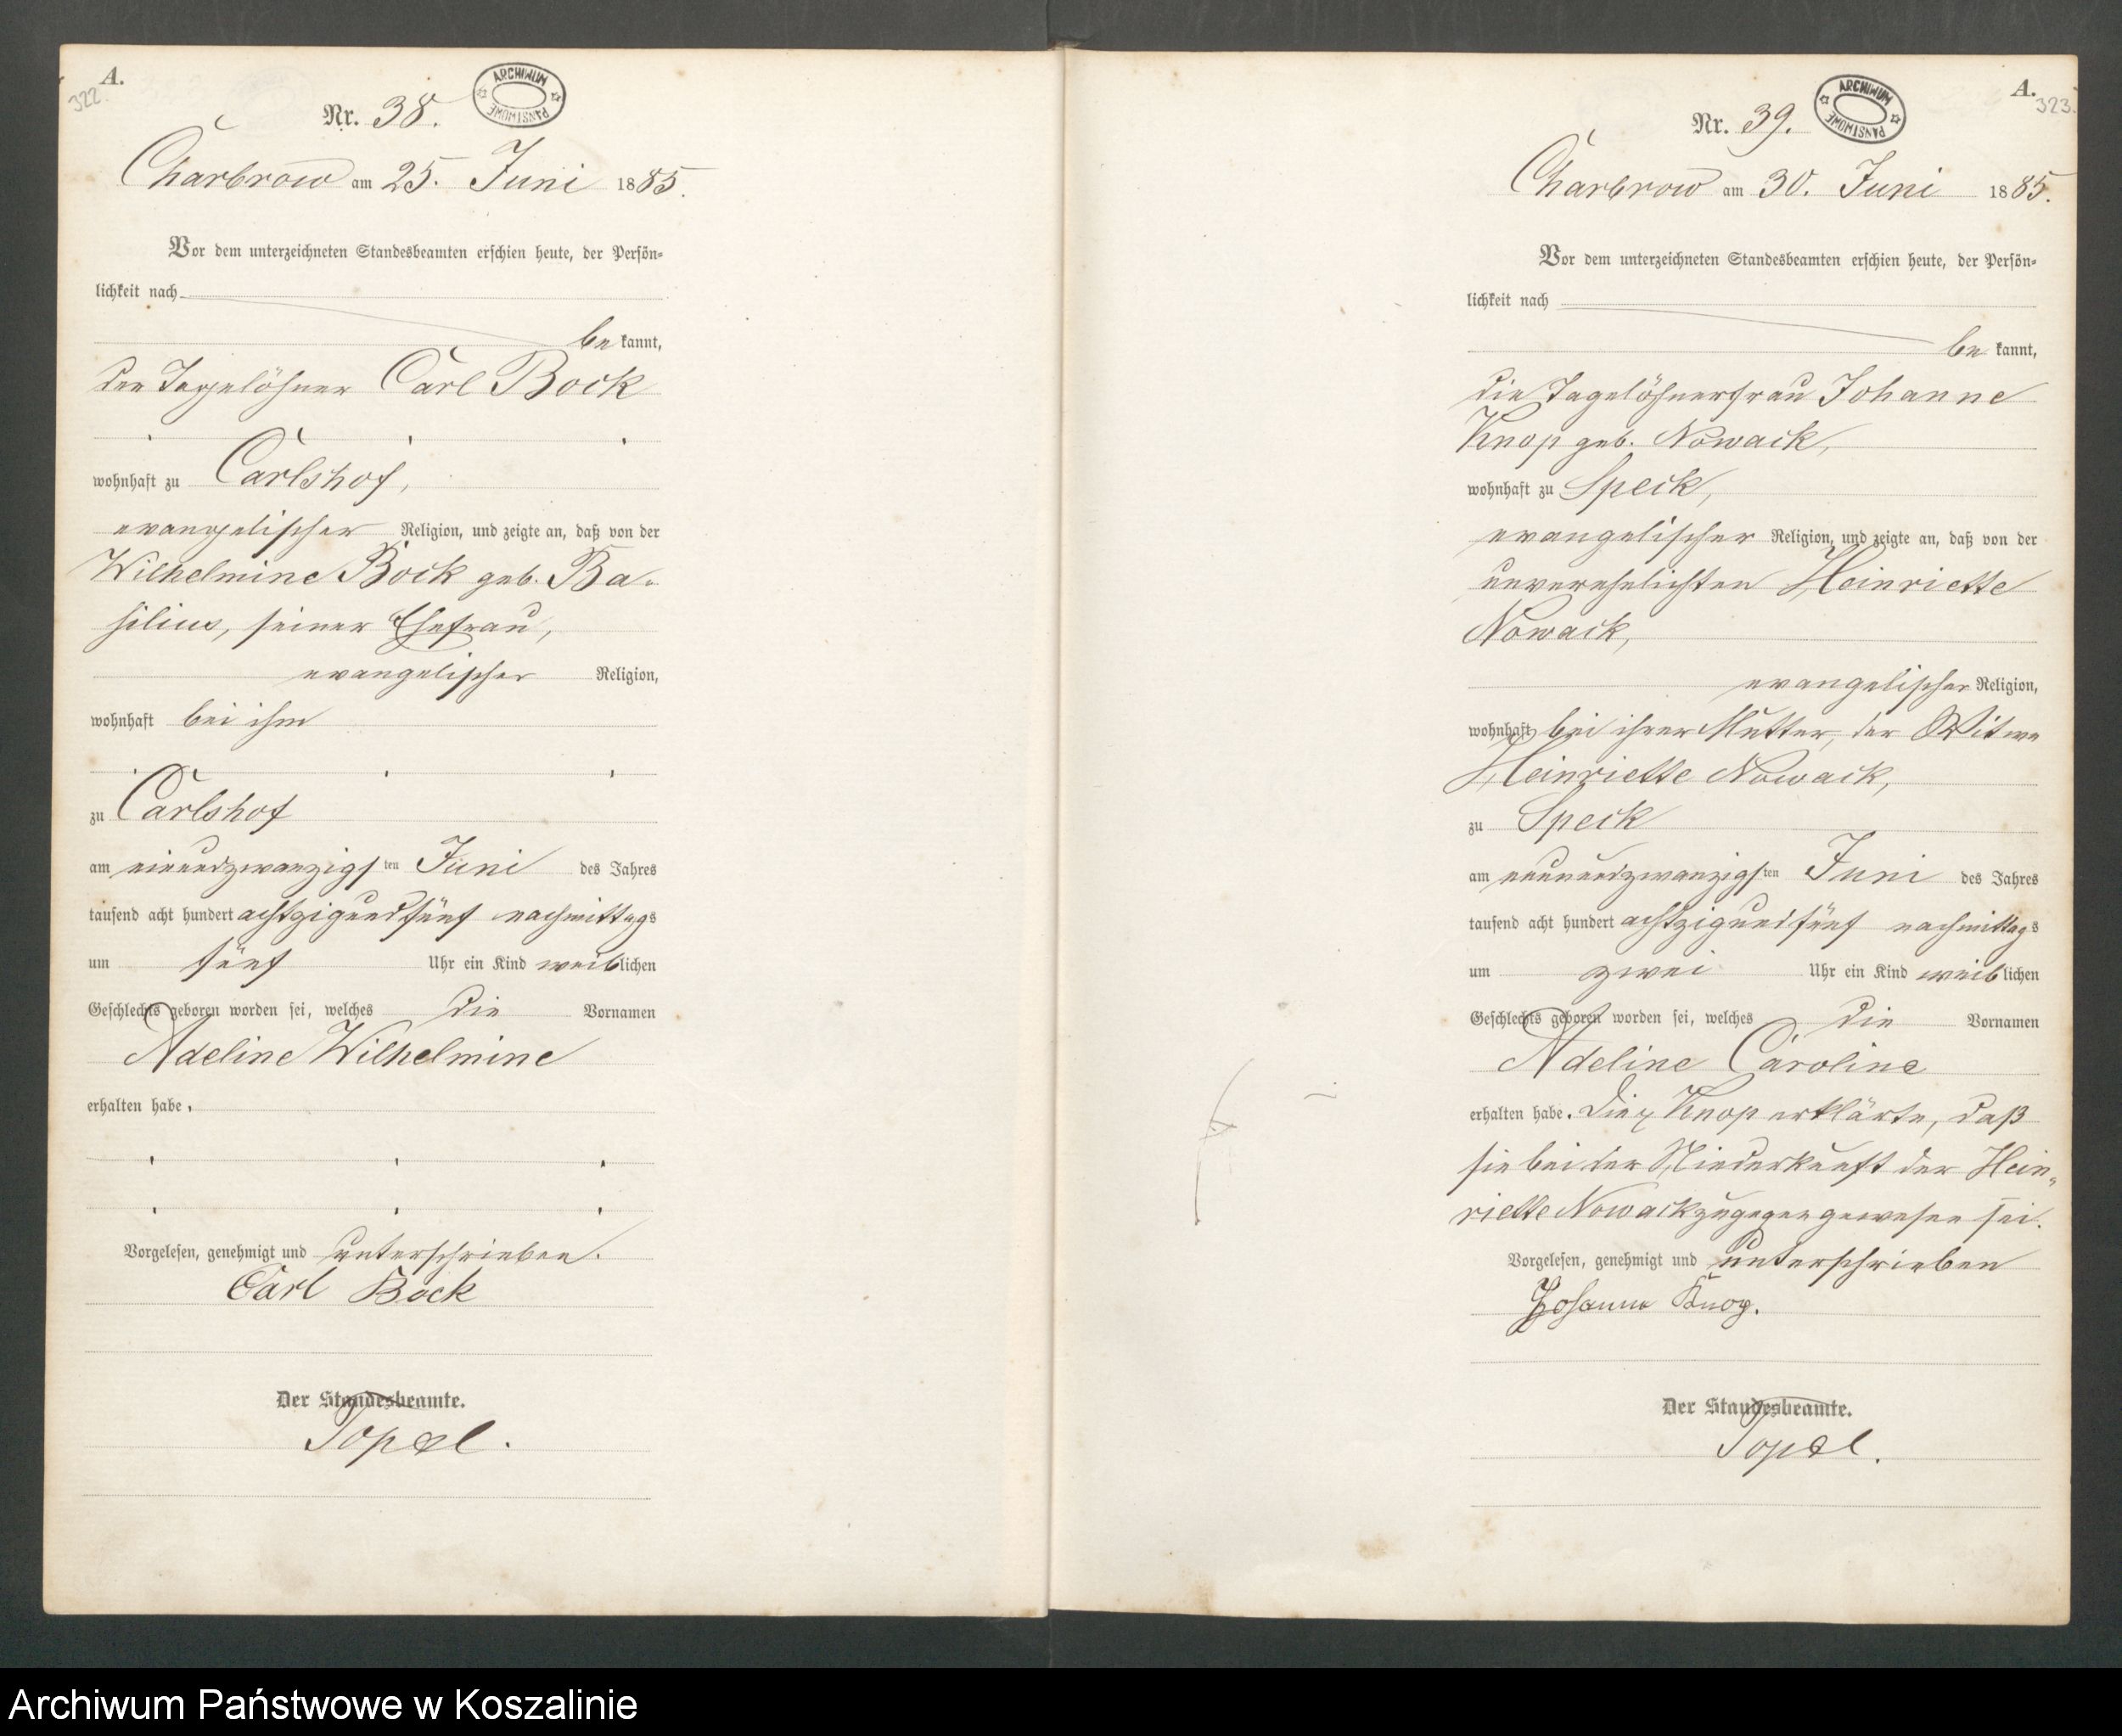 A.
322.
Nr. 38.
ARCHIWUM PAŃSTWOWE
Charbrow am 25. Juni 1885.
Vor dem unterzeichneten Standesbeamten erschien heute, der Persön-
lichkeit nach
bekannt,
der Tagelöhner Carl Bock
wohnhaft zu Carlshof,
evangelischer Religion, und zeigte an, daß von der
Wilhelmine Bock geb. Ba-
silius, seiner Ehefrau,
evangelischer Religion,
wohnhaft bei ihm
zu Carlshof
am einundzwanzigsten Juni des Jahres
tausend acht hundert achtzigundfünf nachmittags
um fünf Uhr ein Kind weiblichen
Geschlechts geboren worden sei, welches die Vornamen
Adeline Wilhelmine
erhalten habe.
Vorgelesen, genehmigt und unterschrieben.
Carl Bock
Der Standesbeamte.
Topel.
A.
323.
Nr. 39.
ARCHIWUM PAŃSTWOWE
Charbrow am 30. Juni 1885.
Vor dem unterzeichneten Standesbeamten erschien heute, der Persön-
lichkeit nach
bekannt,
die Tagelöhnerfrau Johanne
Knop geb. Nowack,
wohnhaft zu Speck,
evangelischer Religion, und zeigte an, daß von der
unverehelichten Heinriette
Nowack,
evangelischer Religion,
wohnhaft bei ihrer Mutter, der Witwe
Heinriette Nowack,
zu Speck
am neunundzwanzigsten Juni des Jahres
tausend acht hundert achtzigundfünf nachmittags
um zwei Uhr ein Kind weiblichen
Geschlechts geboren worden sei, welches die Vornamen
Adeline Caroline
erhalten habe. Die Knop erklärte, daß
sie bei der Niederkunft der Hein-
riette Nowack zugegen gewesen sei.
Vorgelesen, genehmigt und unterschrieben
Johanne Knop.
Der Standesbeamte.
Topel.
Archiwum Państwowe w Koszalinie